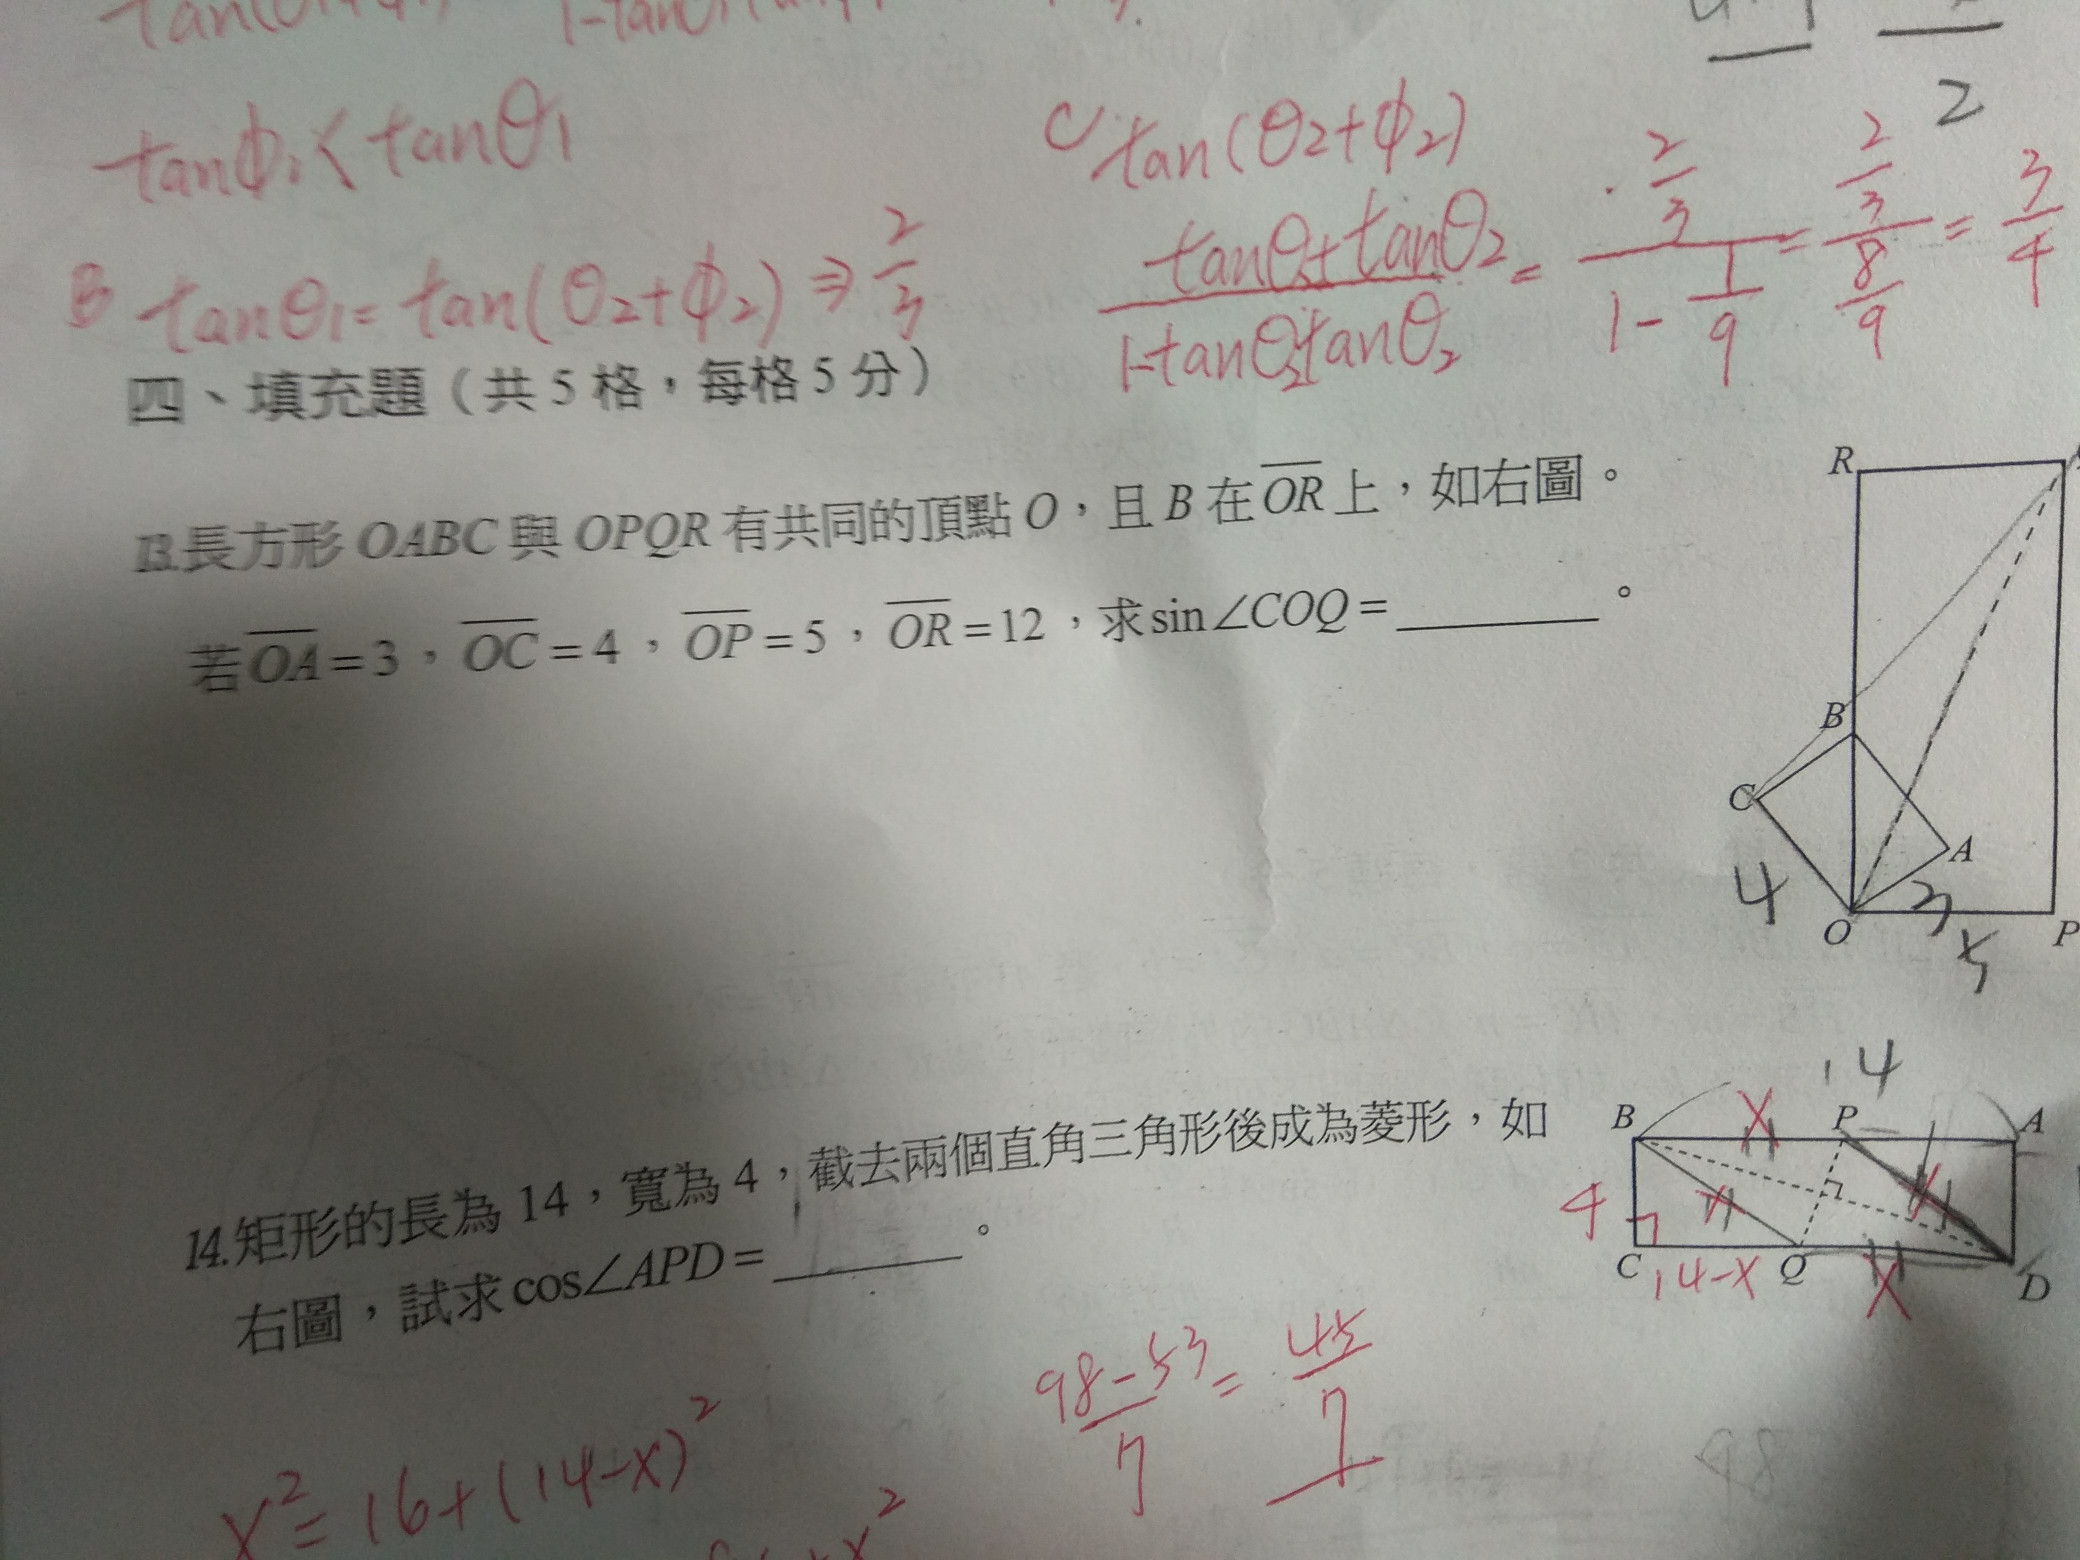 tanφ₁ < tanθ₁
C tan(θ₂+φ₂)
B tanθ₁ = tan(θ₂+φ₂) ⇒ 2/3
tanθ₂+tanθ₂ / 1-tanθ₂tanθ₂ = 2/3 / 1-1/9 = 2/3 / 8/9 = 3/4
2
四、填充題（共5格，每格5分）
13.長方形OABC與OPQR有共同的頂點O，且B在OR上，如右圖。
若OA=3，OC=4，OP=5，OR=12，求sin∠COQ=______。
R
B
C
A
4
3
O
P
5
14.矩形的長為14，寬為4，截去兩個直角三角形後成為菱形，如
右圖，試求cos∠APD=______。
14
B x P A
4
C 14-x Q x D
98-53 / 7 = 45 / 7
x² = 16+(14-x)²